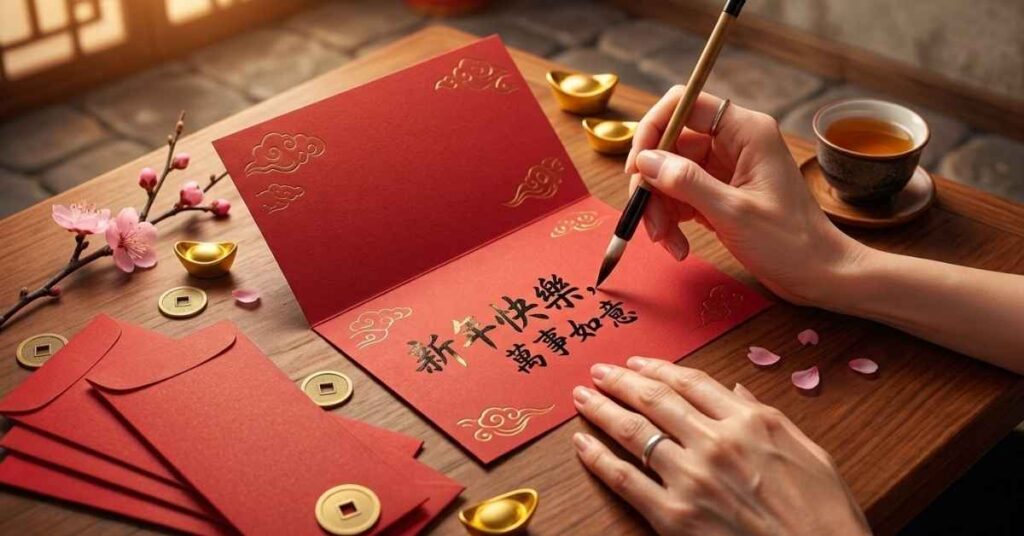 新年快樂,
萬事如意